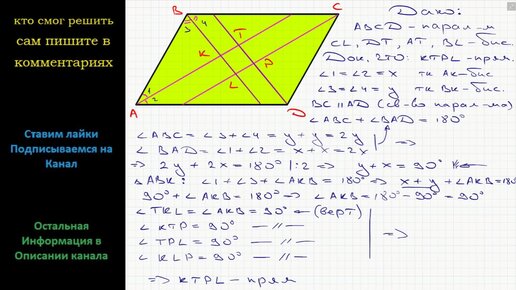 кто смог решить
сам пишите в
комментариях
Ставим лайки
Подписываемся на
Канал
Остальная
Информация в
Описании канала
B
C
3
4
T
K
P
L
1
2
A
D
Дано:
ABCD – парал-м
CL, DT, AT, BL – бис.
Док, что: KTPL – прям.
∠1 = ∠2 = x тк AK – бис
∠3 = ∠4 = y тк BK – бис.
BC || AD (св-во парал-ма)
∠ABC + ∠BAD = 180°
∠ABC = ∠3 + ∠4 = y + y = 2y
∠BAD = ∠1 + ∠2 = x + x = 2x
=> 2y + 2x = 180° |:2 => y + x = 90°
△ABK: ∠1 + ∠3 + ∠AKB = 180° => x + y + ∠AKB = 180
90° + ∠AKB = 180° => ∠AKB = 180° – 90° = 90
∠TKL = ∠AKB = 90° – (верт)
∠KTP = 90° – // –
∠TPL = 90° – // –
∠KLP = 90° – // –
=>
=> KTPL – прям